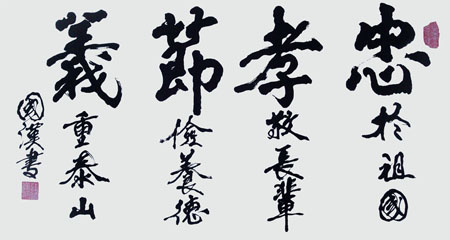 忠於祖國
孝敬長輩
節儉養德
義重泰山
國漢書